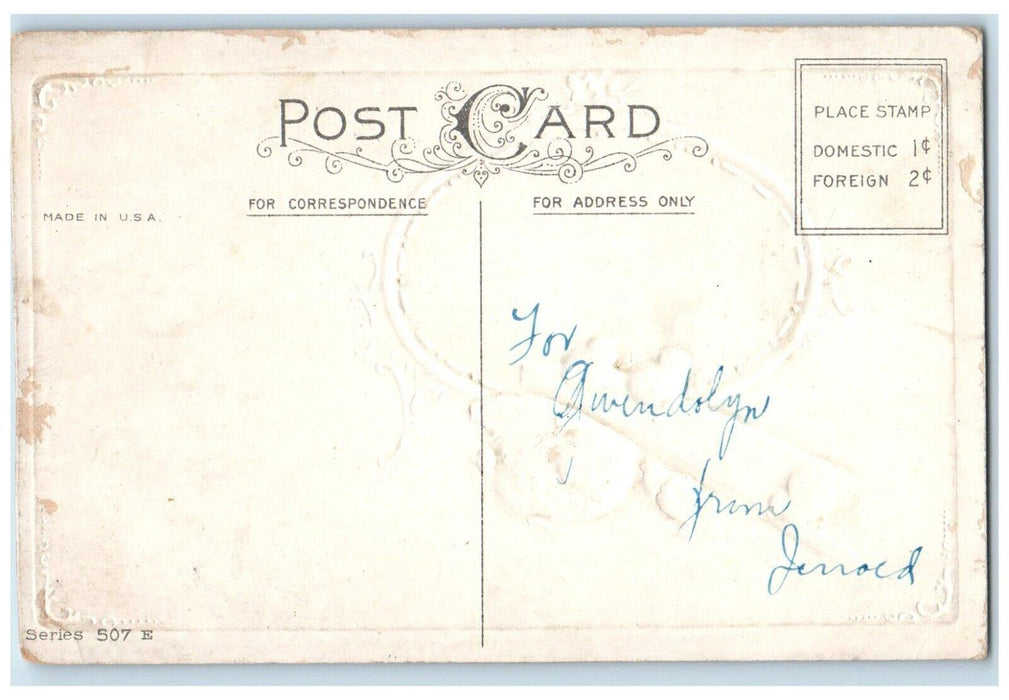 POST CARD
PLACE STAMP
DOMESTIC 1¢
FOREIGN 2¢
FOR CORRESPONDENCE
FOR ADDRESS ONLY
MADE IN U.S.A.
For
Gwendolyn
from
Jerroed
Series 507 E